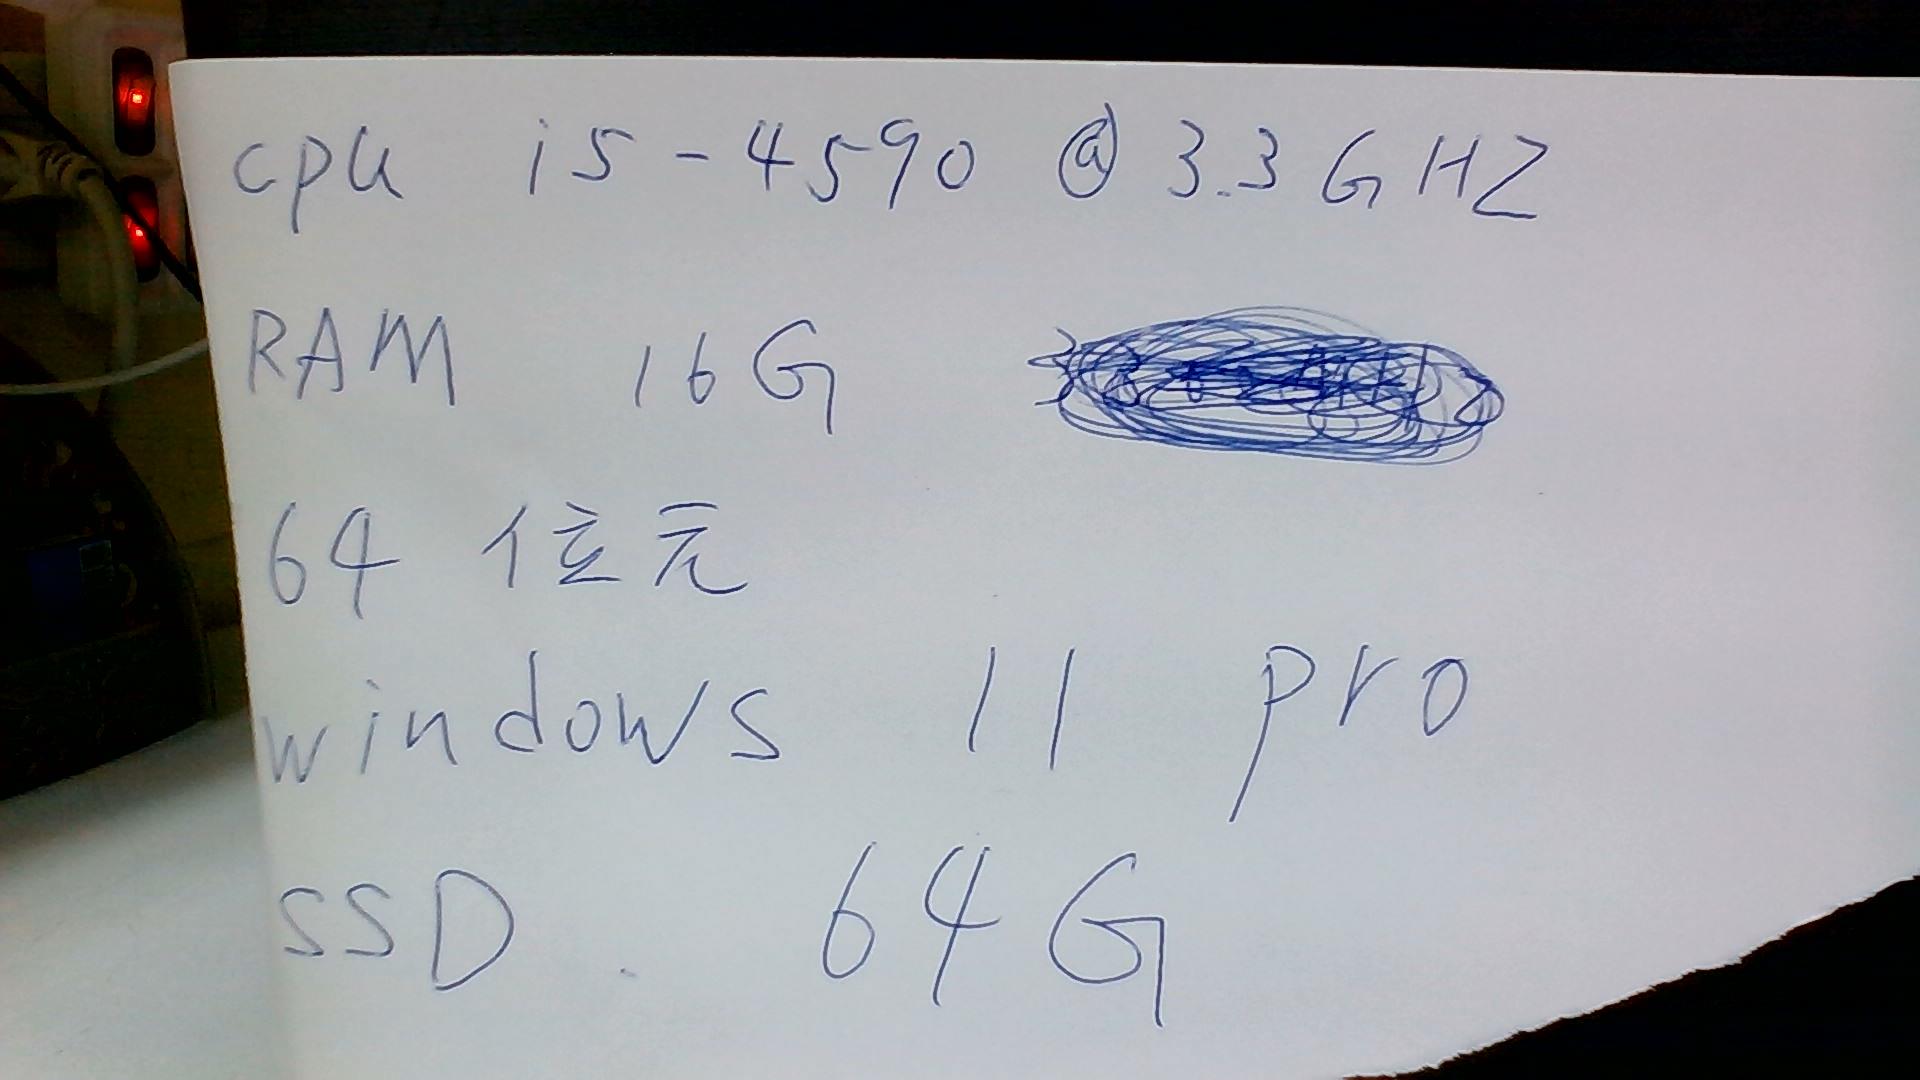 cpu i5-4590 @ 3.3GHZ
RAM 16G
64 位元
windows 11 pro
SSD 64G